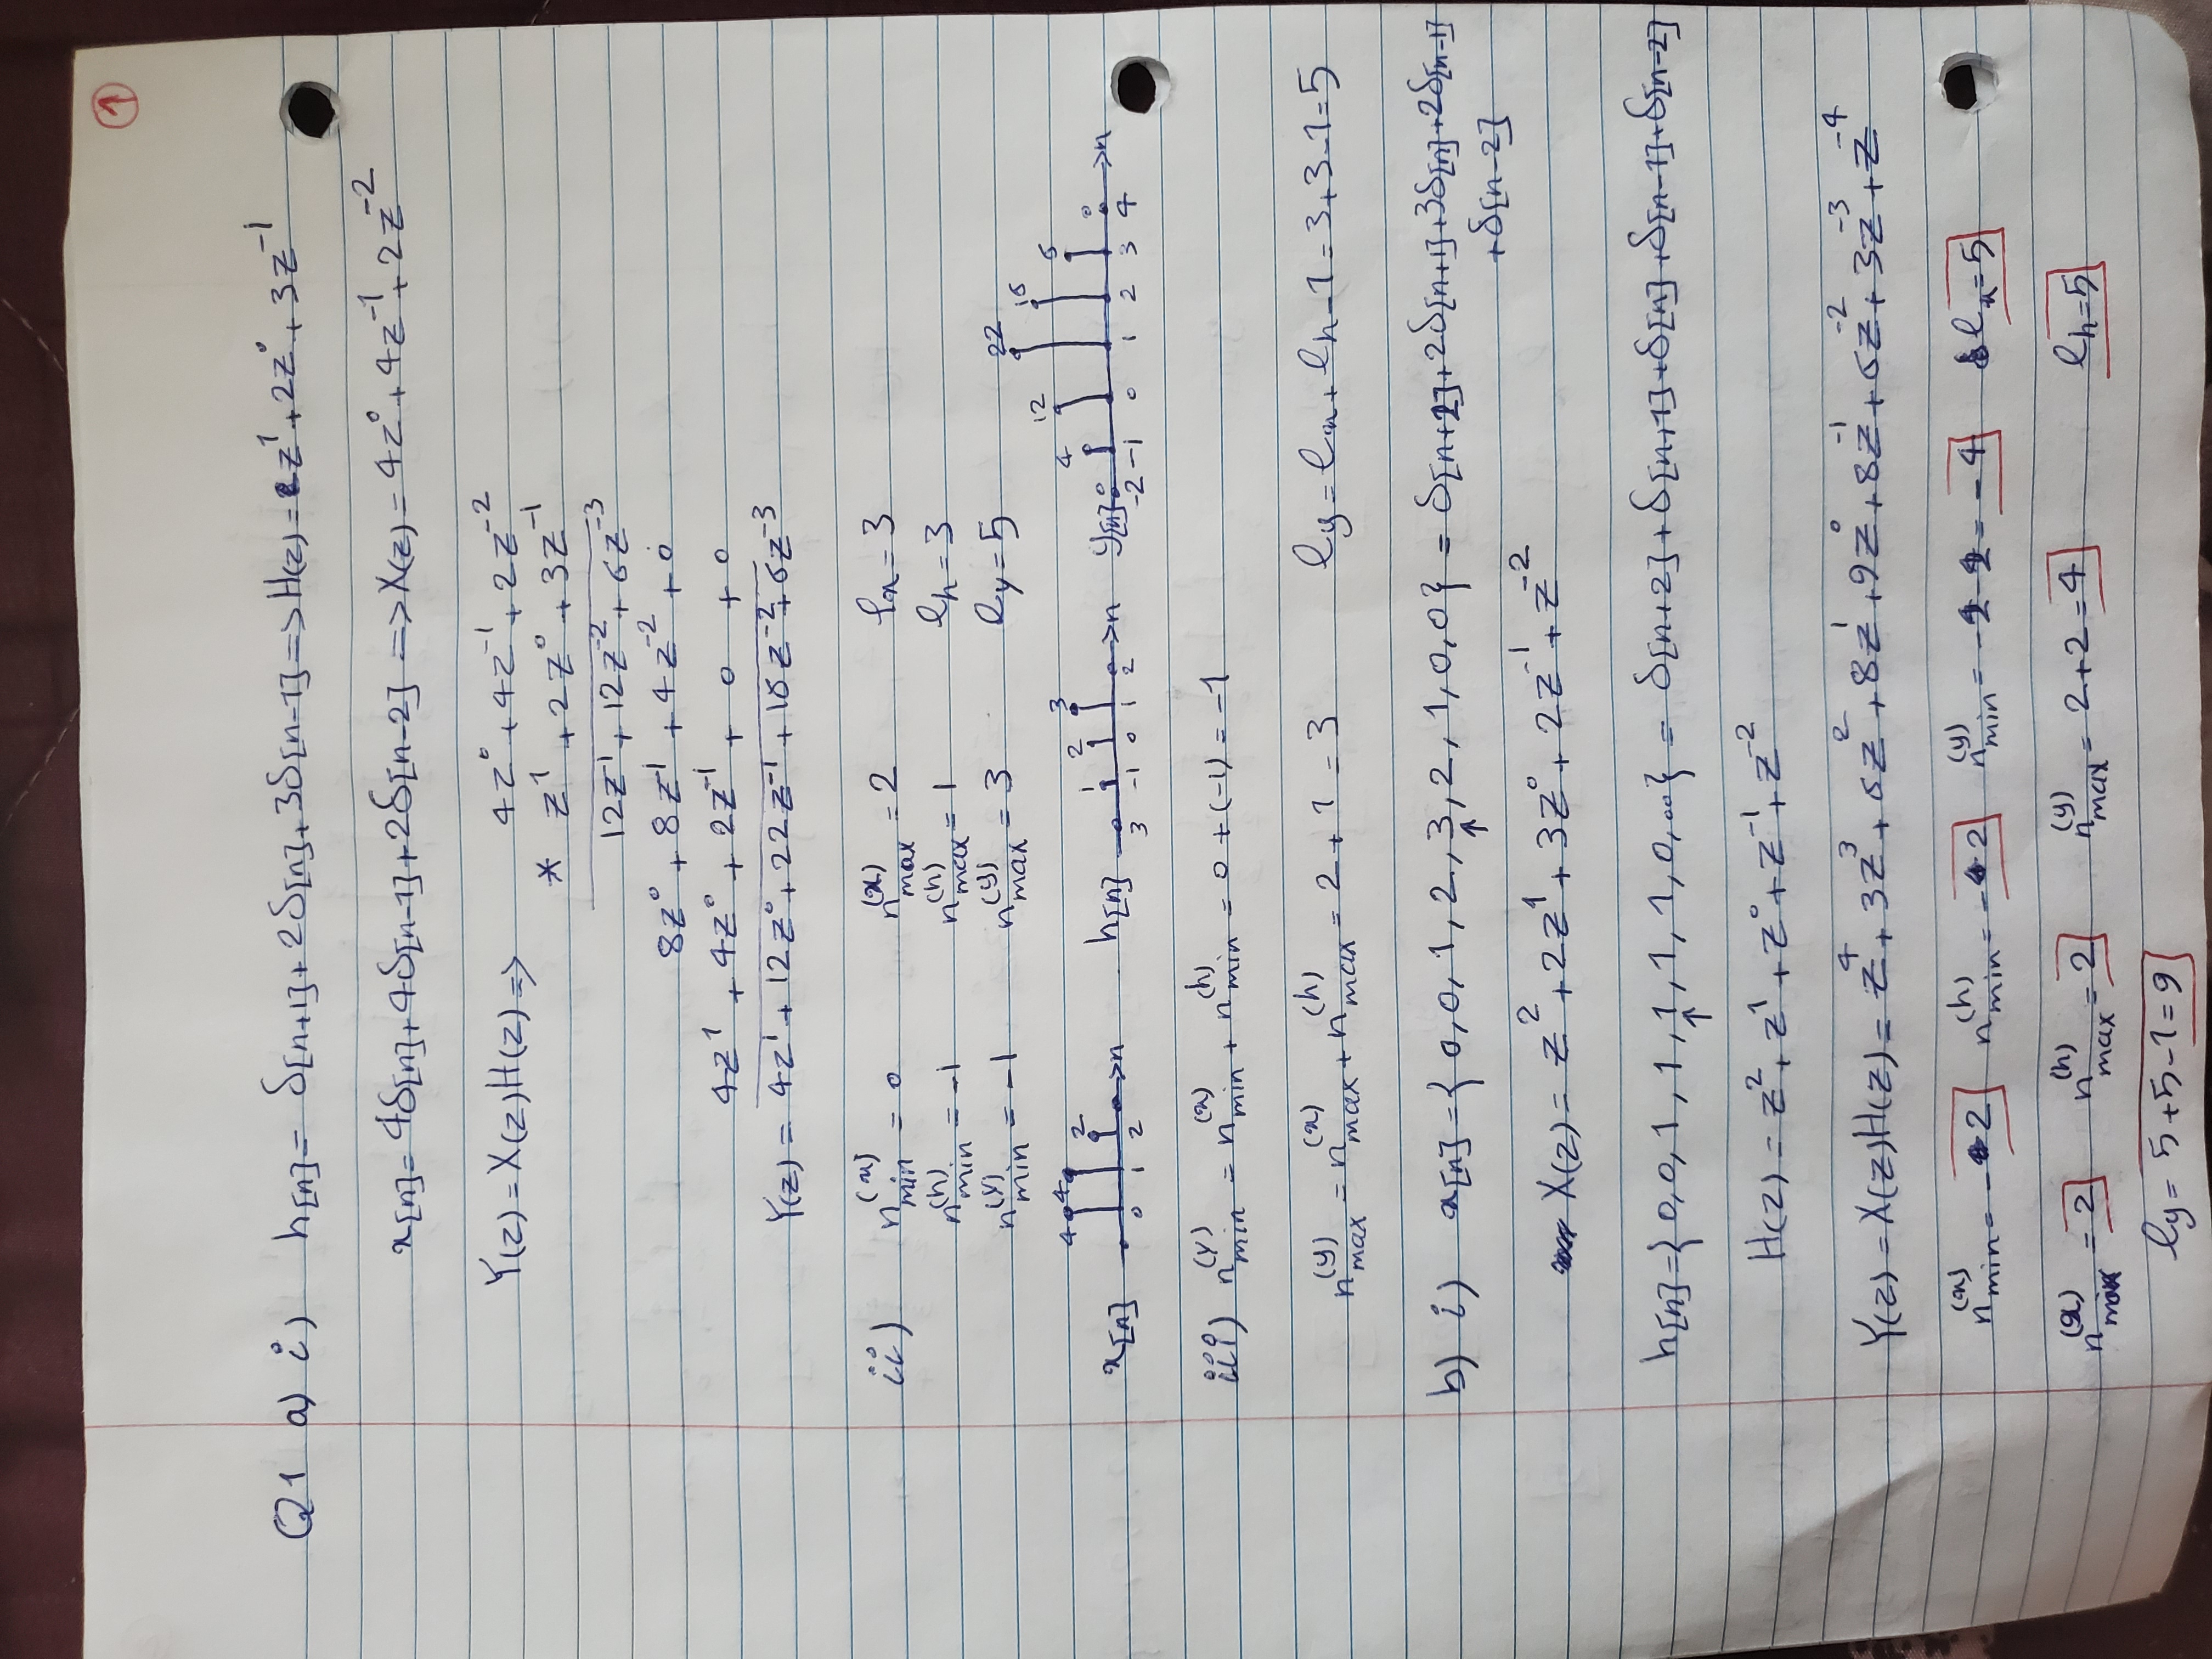 1
Q1 a) i) h[n] = δ[n+1] + 2δ[n] + 3δ[n-1] => H(z) = z¹ + 2z⁰ + 3z⁻¹
x[n] = 4δ[n] + 4δ[n-1] + 2δ[n-2] => X(z) = 4z⁰ + 4z⁻¹ + 2z⁻²
Y(z) = X(z)H(z) => 4z⁰ + 4z⁻¹ + 2z⁻²
* z¹ + 2z⁰ + 3z⁻¹
12z⁻¹ + 12z⁻² + 6z⁻³
8z⁰ + 8z⁻¹ + 4z⁻² + 0
4z¹ + 4z⁰ + 2z⁻¹ + 0 + 0
Y(z) = 4z¹ + 12z⁰ + 22z⁻¹ + 16z⁻² + 6z⁻³
ii) n_min^(x) = 0 n_max^(x) = 2 l_x = 3
n_min^(h) = -1 n_max^(h) = 1 l_h = 3
n_min^(y) = -1 n_max^(y) = 3 l_y = 5
x[n] 4 4 2 >n 0 1 2
h[n] 1 2 3 >n 3 -1 0 1 2
y[n] 0 4 12 22 16 6 0 >n -2 -1 0 1 2 3 4
iii) n_min^(y) = n_min^(x) + n_min^(h) = 0 + (-1) = -1
n_max^(y) = n_max^(x) + n_max^(h) = 2 + 1 = 3 l_y = l_x + l_h - 1 = 3 + 3 - 1 = 5
b) i) x[n] = { 0, 0, 1, 2, 3, 2, 1, 0, 0 } = δ[n+2] + 2δ[n+1] + 3δ[n] + 2δ[n-1]
↑ + δ[n-2]
X(z) = z² + 2z¹ + 3z⁰ + 2z⁻¹ + z⁻²
h[n] = { 0, 0, 1, 1, 1, 1, 1, 0, ... } = δ[n+2] + δ[n+1] + δ[n] + δ[n-1] + δ[n-2]
↑
H(z) = z² + z¹ + z⁰ + z⁻¹ + z⁻²
Y(z) = X(z)H(z) = z⁴ + 3z³ + 6z² + 8z¹ + 9z⁰ + 8z⁻¹ + 6z⁻² + 3z⁻³ + z⁻⁴
n_min^(x) = -2 n_min^(h) = -2 n_min^(y) = -2 -2 = -4 l_x = 5
n_max^(x) = 2 n_max^(h) = 2 n_max^(y) = 2 + 2 = 4 l_h = 5
l_y = 5 + 5 - 1 = 9